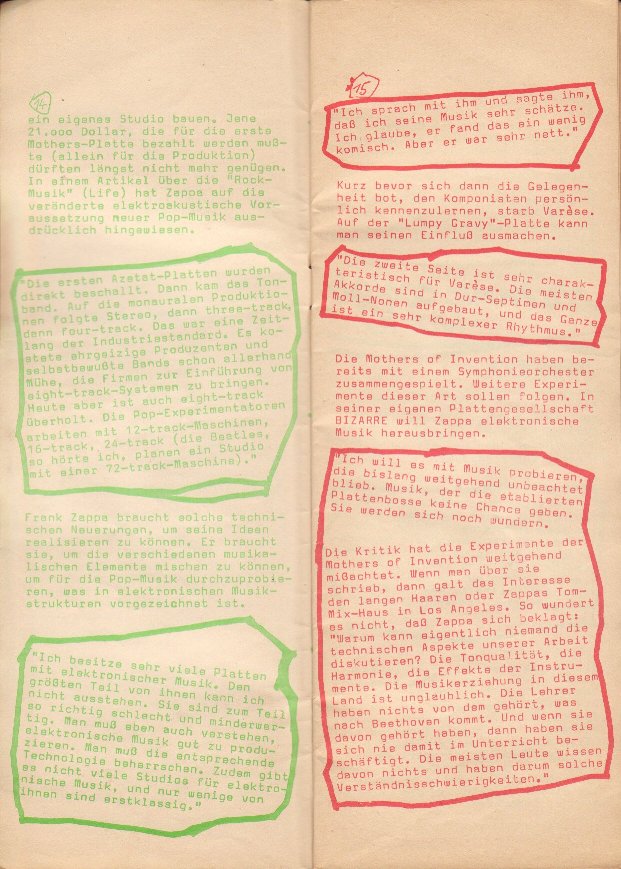 14
ein eigenes Studio bauen. Jene
21.ooo Dollar, die für die erste
Mothers-Platte bezahlt werden muß-
te (allein für die Produktion)
dürften längst nicht mehr genügen.
In einem Artikel über die "Rock-
Musik" (Life) hat Zappa auf die
veränderte elektroakustische Vor-
aussetzung neuer Pop-Musik aus-
drücklich hingewiesen.
"Die ersten Azetat-Platten wurden
direkt beschallt. Dann kam das Ton-
band. Auf die monauralen Produktio-
nen folgte Stereo, dann three-track,
dann four-track. Das war eine Zeit-
lang der Industriestandard. Es ko-
stete ehrgeizige Produzenten und
selbstbewußte Bands schon allerhand
Mühe, die Firmen zur Einführung von
eight-track-Systemen zu bringen.
Heute aber ist auch eight-track
überholt. Die Pop-Experimentatoren
arbeiten mit 12-track-Maschinen,
16-track, 24-track (die Beatles,
so hörte ich, planen ein Studio
mit einer 72-track-Maschine)."
Frank Zappa braucht solche techni-
schen Neuerungen, um seine Ideen
realisieren zu können. Er braucht
sie, um die verschiedenen musika-
lischen Elemente mischen zu können,
um für die Pop-Musik durchzuprobie-
ren, was in elektronischen Musik-
strukturen vorgezeichnet ist.
"Ich besitze sehr viele Platten
mit elektronischer Musik. Den
größten Teil von ihnen kann ich
nicht ausstehen. Sie sind zum Teil
so richtig schlecht und minderwer-
tig. Man muß eben auch verstehen,
elektronische Musik gut zu produ-
zieren. Man muß die entsprechende
Technologie beherrschen. Zudem gibt
es nicht viele Studios für elektro-
nische Musik, und nur wenige von
ihnen sind erstklassig."
15
"Ich sprach mit ihm und sagte ihm,
daß ich seine Musik sehr schätze.
Ich glaube, er fand das ein wenig
komisch. Aber er war sehr nett."
Kurz bevor sich dann die Gelegen-
heit bot, den Komponisten persön-
lich kennenzulernen, starb Varèse.
Auf der "Lumpy Gravy"-Platte kann
man seinen Einfluß ausmachen.
"Die zweite Seite ist sehr charak-
teristisch für Varèse. Die meisten
Akkorde sind in Dur-Septimen und
Moll-Nonen aufgebaut, und das Ganze
ist ein sehr komplexer Rhythmus."
Die Mothers of Invention haben be-
reits mit einem Symphonieorchester
zusammengespielt. Weitere Experi-
mente dieser Art sollen folgen. In
seiner eigenen Plattengesellschaft
BIZARRE will Zappa elektronische
Musik herausbringen.
"Ich will es mit Musik probieren,
die bislang weitgehend unbeachtet
blieb. Musik, der die etablierten
Plattenbosse keine Chance geben.
Sie werden sich noch wundern.
Die Kritik hat die Experimente der
Mothers of Invention weitgehend
mißachtet. Wenn man über sie
schrieb, dann galt das Interesse
den langen Haaren oder Zappas Tom-
Mix-Haus in Los Angeles. So wundert
es nicht, daß Zappa sich beklagt:
"Warum kann eigentlich niemand die
technischen Aspekte unserer Arbeit
diskutieren? Die Tonqualität, die
Harmonie, die Effekte der Instru-
mente. Die Musikerziehung in diesem
Land ist unglaublich. Die Lehrer
haben nichts von dem gehört, was
nach Beethoven kommt. Und wenn sie
davon gehört haben, dann haben sie
sich nie damit im Unterricht be-
schäftigt. Die meisten Leute wissen
davon nichts und haben darum solche
Verständnisschwierigkeiten."